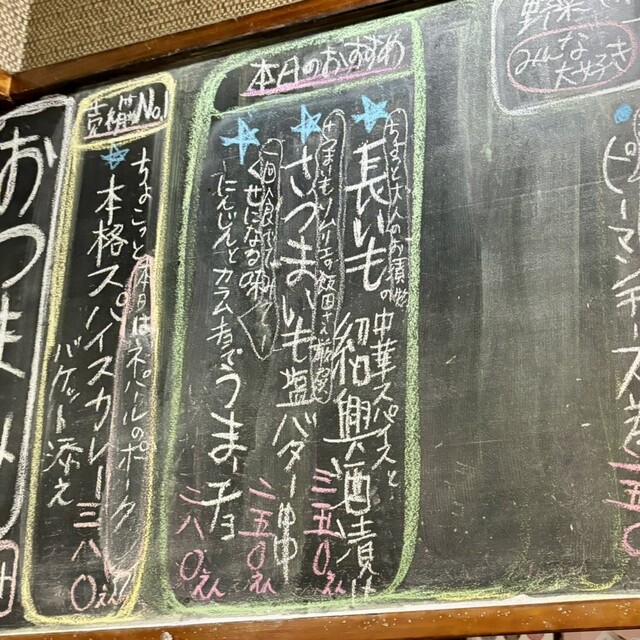 野菜
みんな
大好き
ピーマンチーズ
五〇
本月のおすすめ
ちょっと大人のお漬物
長いもの中華スパイスと
紹興酒漬け
三五〇えん
さつまいもソムリエの飯田さん厳選
さつまいも塩バター
二五〇えん
一回食べて
くせになる味
にんじんとカラムーチョでうまーチョ
二八〇えん
売れ筋No.1
ちょこっと本日はネパールのポーク
本格スパイスカレー
三八〇えん
バゲット添え
おつまみ